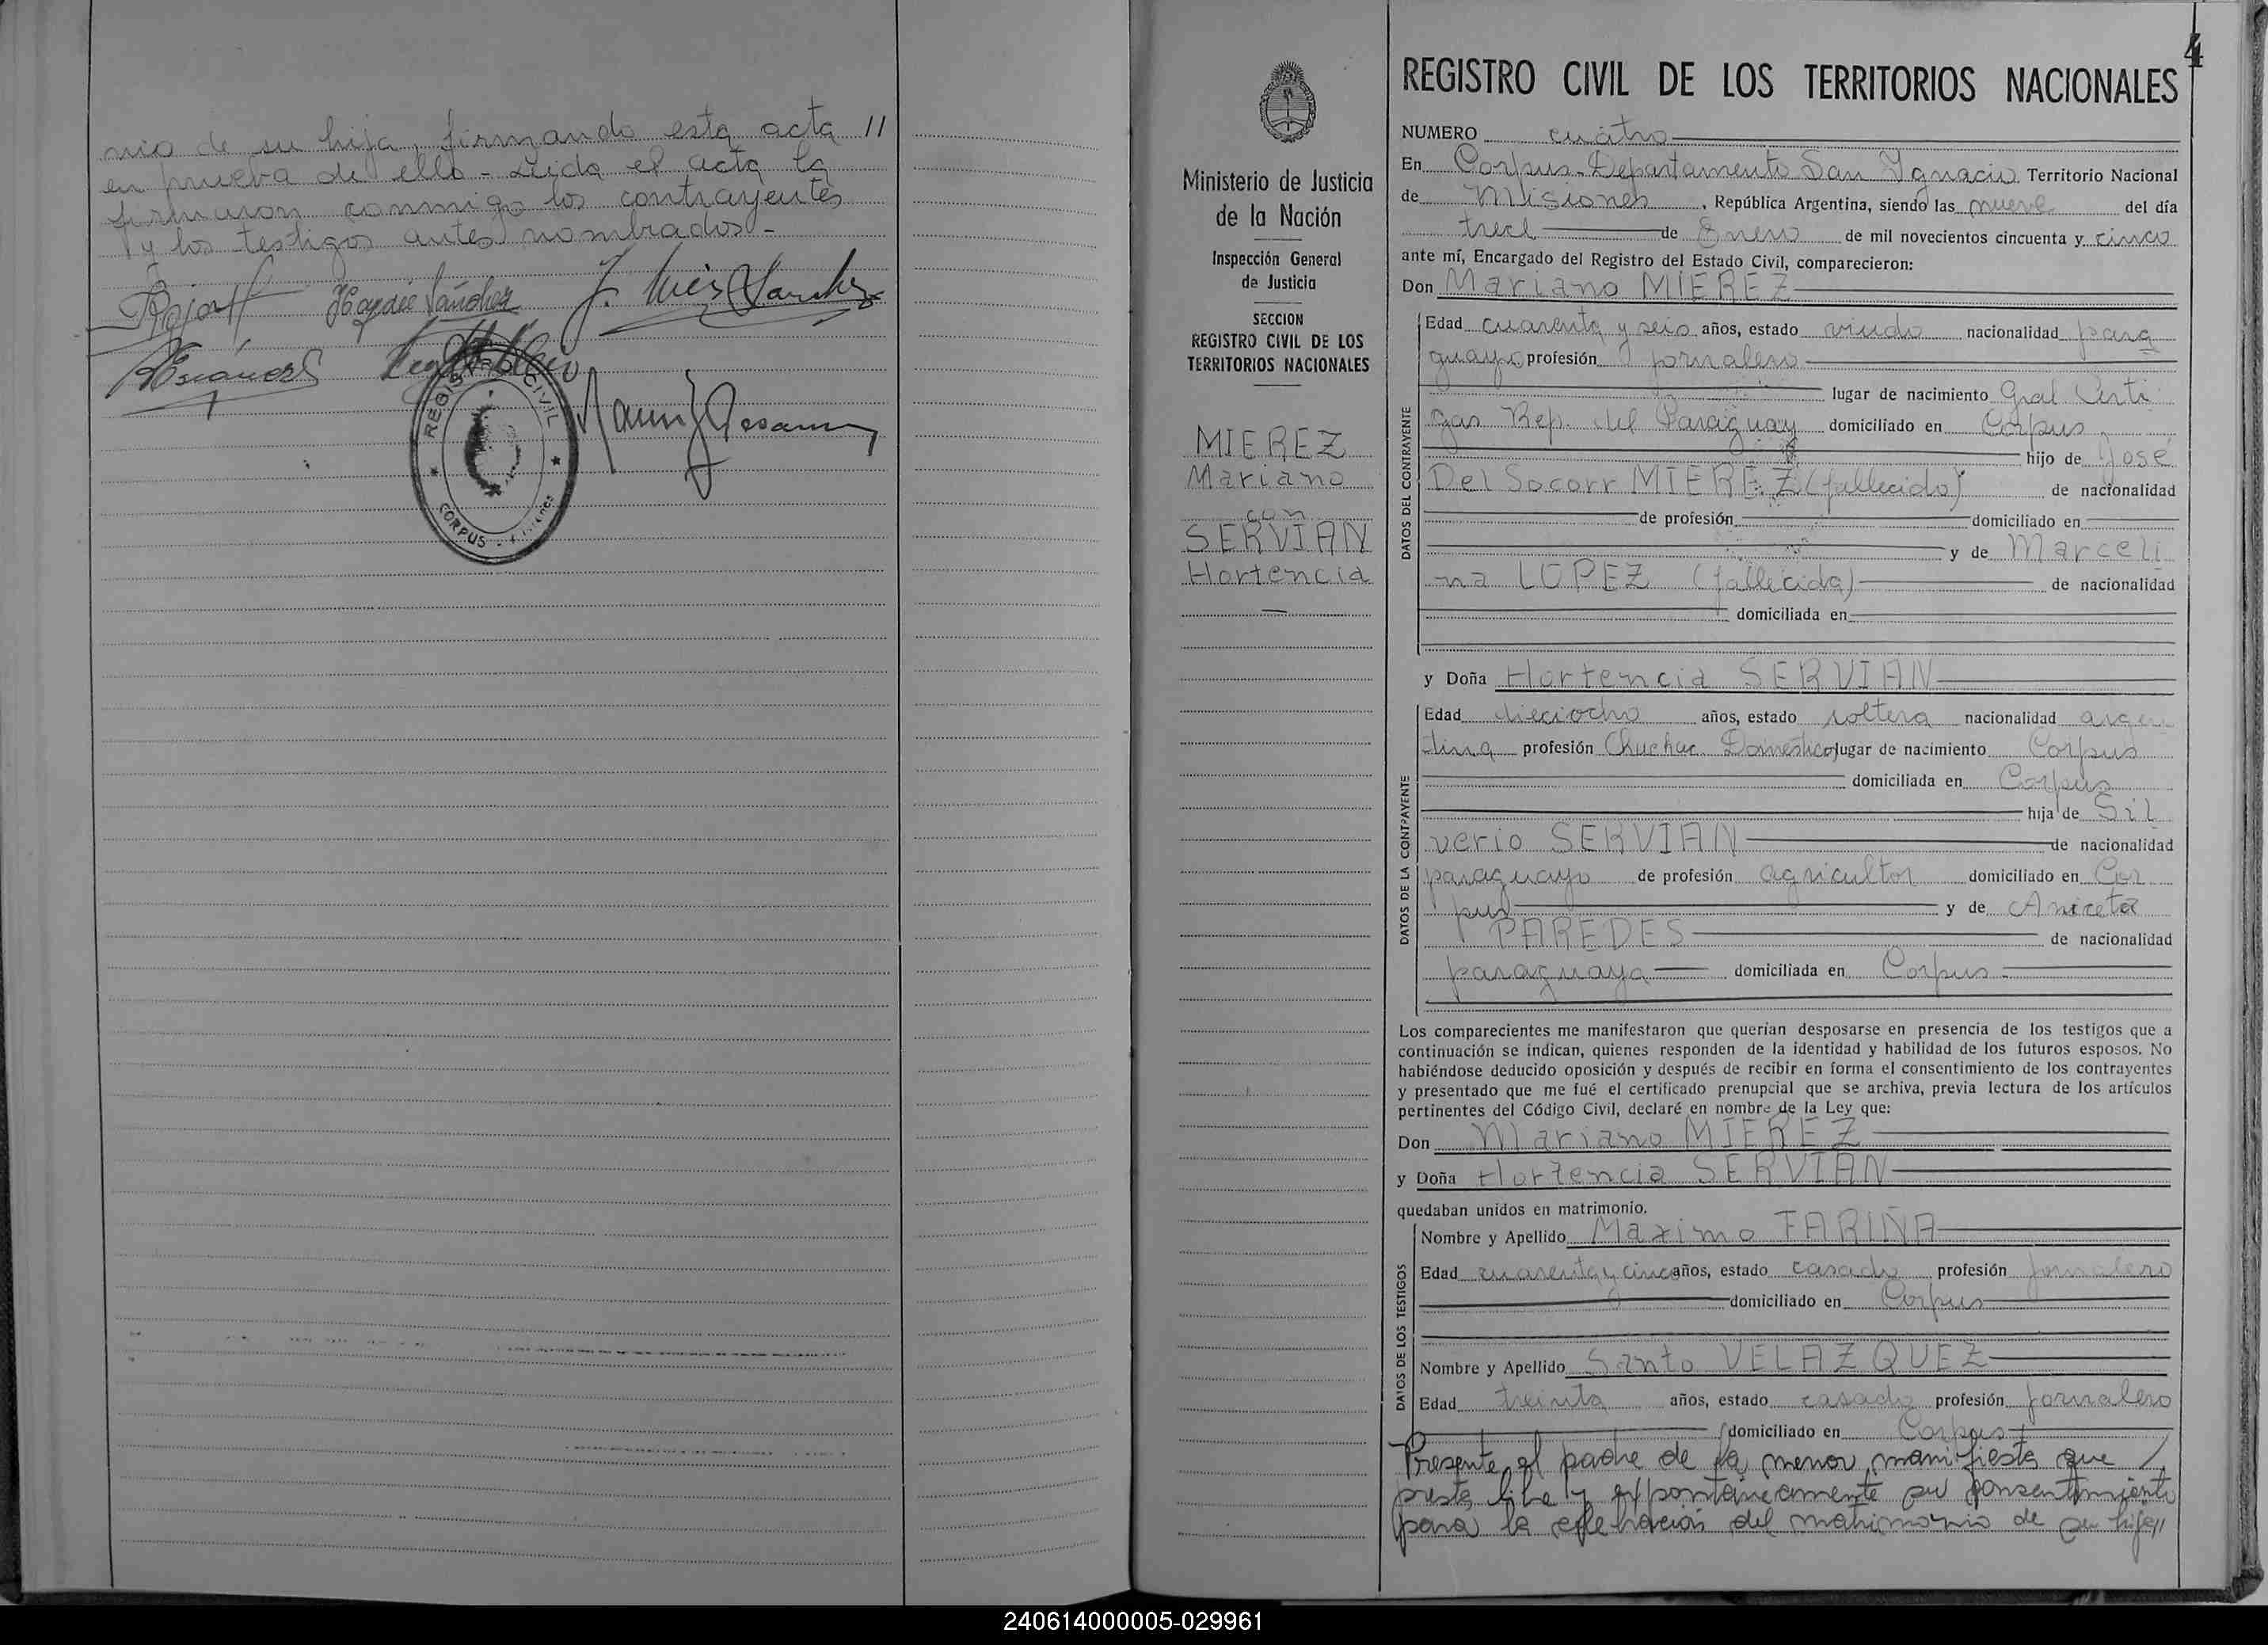 nio de su hija, firmando esta acta //
en prueva de ello - Leida el acta la
firmaron conmigo los contrayentes
y los testigos antes nombrados -
Haydée Sánchez
J. Luis Sanchez
REGISTRO CIVIL
CORPUS
4
REGISTRO CIVIL DE LOS TERRITORIOS NACIONALES
Ministerio de Justicia
de la Nación
Inspección General
de Justicia
SECCION
REGISTRO CIVIL DE LOS
TERRITORIOS NACIONALES
MIEREZ
Mariano
con
SERVIAN
Hortencia
NUMERO cuatro
En Corpus - Departamento San Ygnacio Territorio Nacional
de Misiones, República Argentina, siendo las nueve del día
trece de Enero de mil novecientos cincuenta y cinco
ante mí, Encargado del Registro del Estado Civil, comparecieron:
Don Mariano MIEREZ
DATOS DEL CONTRAYENTE
Edad cuarenta y seis años, estado viudo nacionalidad para
guayo profesión jornalero
lugar de nacimiento Gral Arti
gas Rep. del Paraguay domiciliado en Corpus
hijo de José
Del Socorr MIEREZ (fallecido) de nacionalidad
de profesión domiciliado en
y de Marceli
na LOPEZ (fallecida) de nacionalidad
domiciliada en
y Doña Hortencia SERVIAN
DATOS DE LA CONTRAYENTE
Edad dieciocho años, estado soltera nacionalidad argen
tina profesión Domestico lugar de nacimiento Corpus
domiciliada en Corpus
hija de Sil
verio SERVIAN de nacionalidad
paraguayo de profesión agricultor domiciliado en Cor
pus y de Aniceta
PAREDES de nacionalidad
paraguaya domiciliada en Corpus
Los comparecientes me manifestaron que querían desposarse en presencia de los testigos que a
continuación se indican, quienes responden de la identidad y habilidad de los futuros esposos. No
habiéndose deducido oposición y después de recibir en forma el consentimiento de los contrayentes
y presentado que me fué el certificado prenupcial que se archiva, previa lectura de los artículos
pertinentes del Código Civil, declaré en nombre de la Ley que:
Don Mariano MIEREZ
y Doña Hortencia SERVIAN
quedaban unidos en matrimonio.
DATOS DE LOS TESTIGOS
Nombre y Apellido Maximo FARIÑA
Edad cuarenta y cinco años, estado casado profesión jornalero
domiciliado en Corpus
Nombre y Apellido Santo VELAZQUEZ
Edad treinta años, estado casado profesión jornalero
domiciliado en Corpus
Presente el padre de la menor manifiesta que
presta libre y expontaneamente su consentimiento
para la celebración del matrimonio de su hija //
240614000005-029961